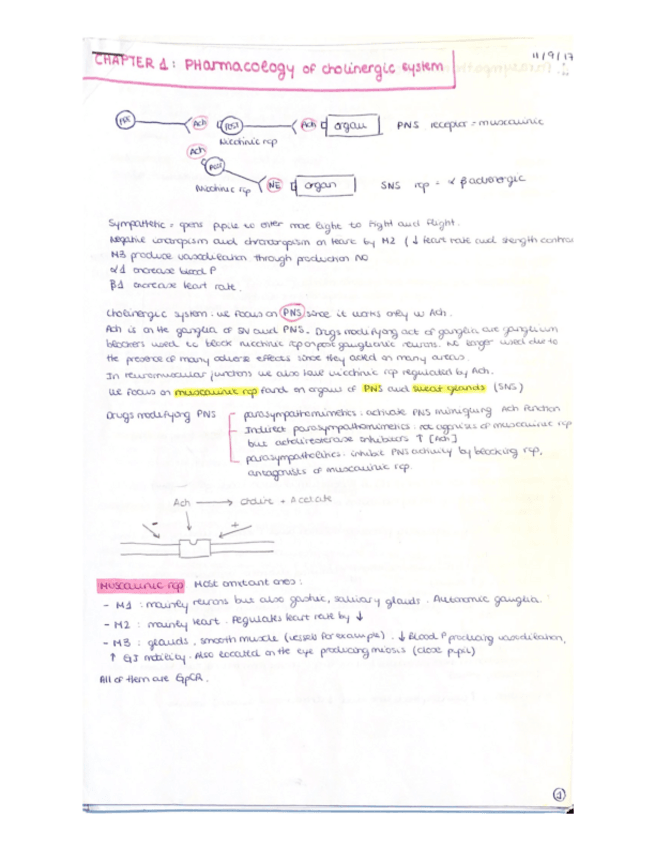 11/9/17
CHAPTER 1: Pharmacology of cholinergic system
PRE Ach POST Ach organ PNS receptor = muscarinic
Nicotinic rcp
Ach
POST
Nicotinic rcp NE organ SNS rcp = α βadrenergic
Sympathetic = opens pupils to enter more light to fight and flight.
Negative ionotropism and chronotropism on heart by M2 (↓ heart rate and strength contrac
M3 produce vasodilation through production NO
α1 increase blood P
β1 increase heart rate.
Cholinergic system: we focus on PNS since it works only w Ach.
Ach is on the ganglia of SN and PNS. Drugs modifying act of ganglia are ganglium
blockers used to block nicotinic rcp on post ganglionic neurons. No longer used due to
the presence of many adverse effects since they acted on many areas.
In neuromuscular junctions we also have nicotinic rcp regulated by Ach.
We focus on muscarinic rcp found on organs of PNS and sweat glands (SNS)
Drugs modifying PNS
parasympathomimetics: activate PNS mimicking Ach function
Indirect parasympathomimetics: not agonists of muscarinic rcp
but acetylcolinesterase inhibitors ↑ [Ach]
parasympatholitics: inhibit PNS activity by blocking rcp.
antagonists of muscarinic rcp.
Ach → Choline + Acetate
- +
Muscarinic rcp Most important ones:
- M1: mainly neurons but also gastric, salivary glands. Autonomic ganglia.
- M2: mainly heart. Regulates heart rate by ↓
- M3: glands, smooth muscle (vessels for example). ↓ Blood P producing vasodilation,
↑ GI motility. Also located on the eye producing miosis (close pupil)
All of them are GpCR.
1